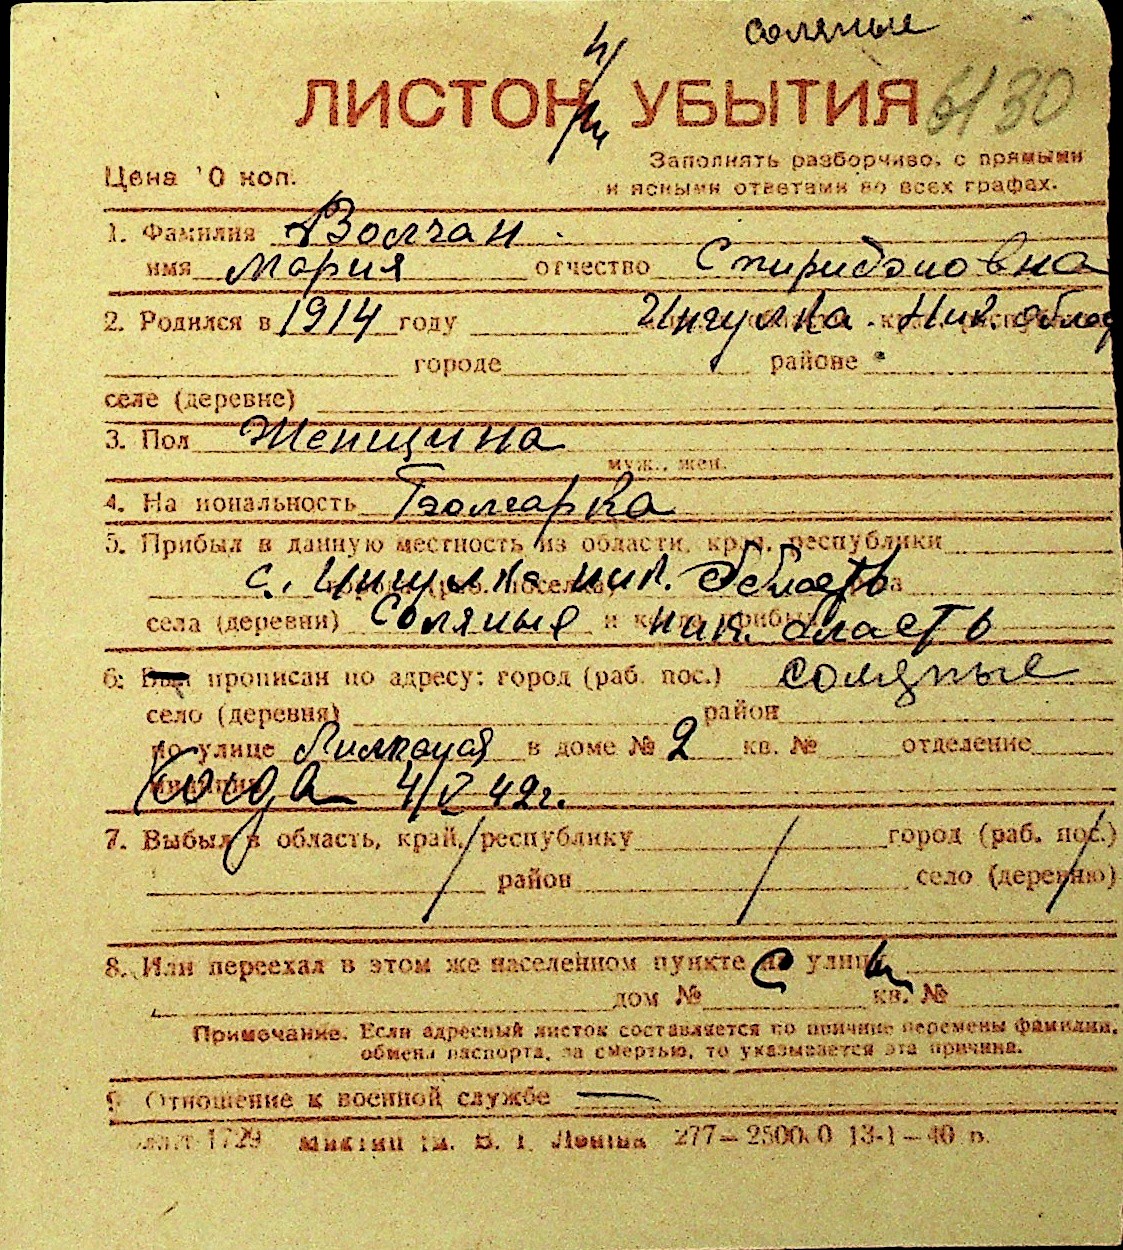 соляные
ЛИСТОК УБЫТИЯ 6130
Цена 10 коп. Заполнять разборчиво, с прямыми
и ясными ответами во всех графах.
1. Фамилия Волчан
имя Мария отчество Спиридоновна
2. Родился в 1914 году Ингулка Ник. облас
городе районе
селе (деревне)
3. Пол Женщина
муж., жен.
4. Национальность Болгарка
5. Прибыл в данную местность из области, края, республики
с. Ингулка ник. область
села (деревни) Соляные и ник. бласть
6. Был прописан по адресу: город (раб. пос.) соляные
село (деревня) район
по улице в доме № 2 кв. № отделение
милиции 4/V 42г.
7. Выбыл в область, край, республику город (раб. пос.)
район село (деревню)
8. Или переехал в этом же населенном пункте на улицу
дом № кв. №
Примечание. Если адресный листок составляется по причине перемены фамилии,
обмена паспорта, за смертью, то указывается эта причина.
9. Отношение к военной службе —
1729 им. В. І. Леніна 277—25000 13-1—40 р.